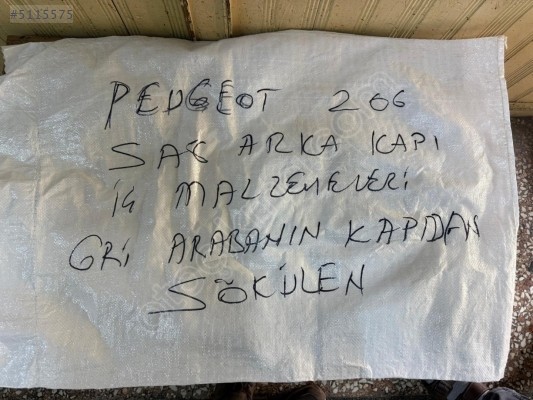 #5115575
PEUGEOT 206
SAĞ ARKA KAPI
İÇ MALZEMELERİ
GRİ ARABANIN KAPIDAN
SÖKÜLEN